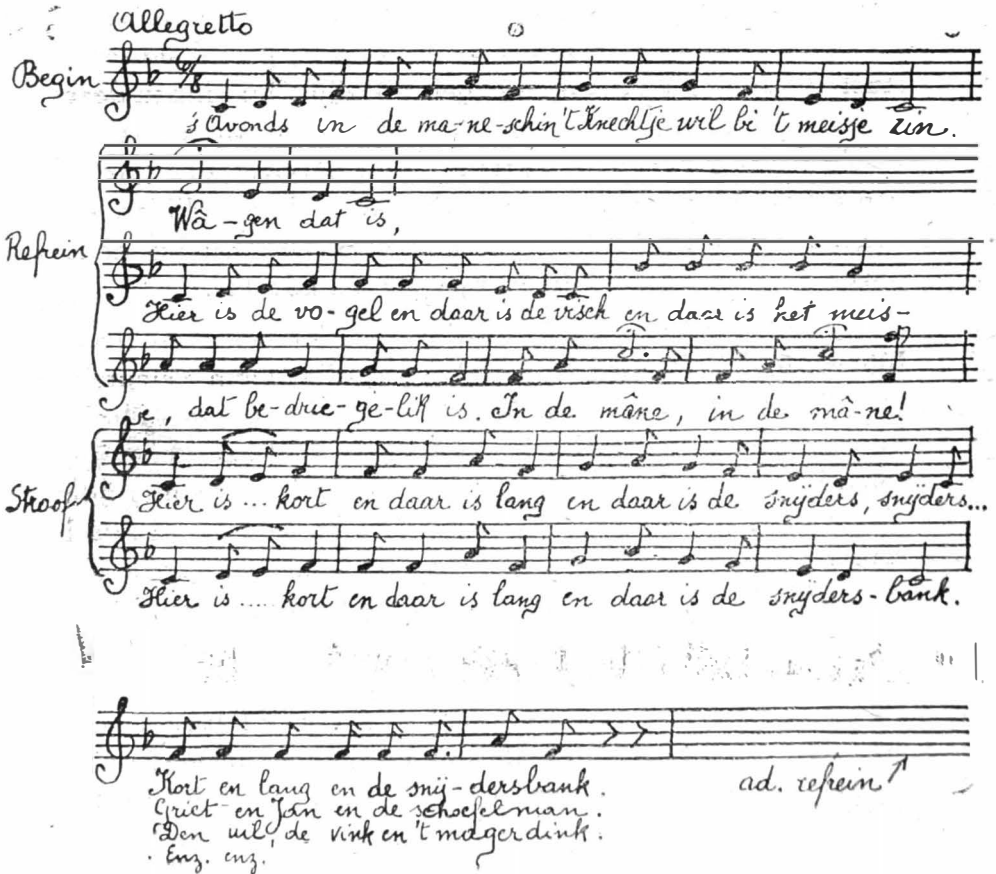 Allegretto
Begin 6/8
's Avonds in de ma-ne-schin 't Knechtje wil bi 't meisje zin.
Wâ-gen dat is,
Refrein
Hier is de vo-gel en daar is de visch en daar is het meis-
e, dat be-drie-ge-lik is. In de mâne, in de mâ-ne!
Stroof
Hier is ... kort en daar is lang en daar is de snijders, snijders...
Hier is .... kort en daar is lang en daar is de snijders-bank.
Kort en lang en de snij-dersbank.
ad. refrein
Griet en Jan en de schoefelman.
Den uil, de vink en 't mager dink.
Enz. enz.